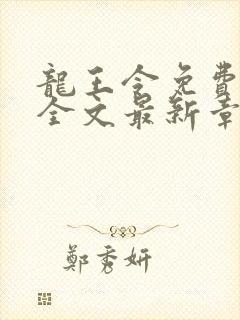 龍王令免費
全文最新章
鄭秀妍